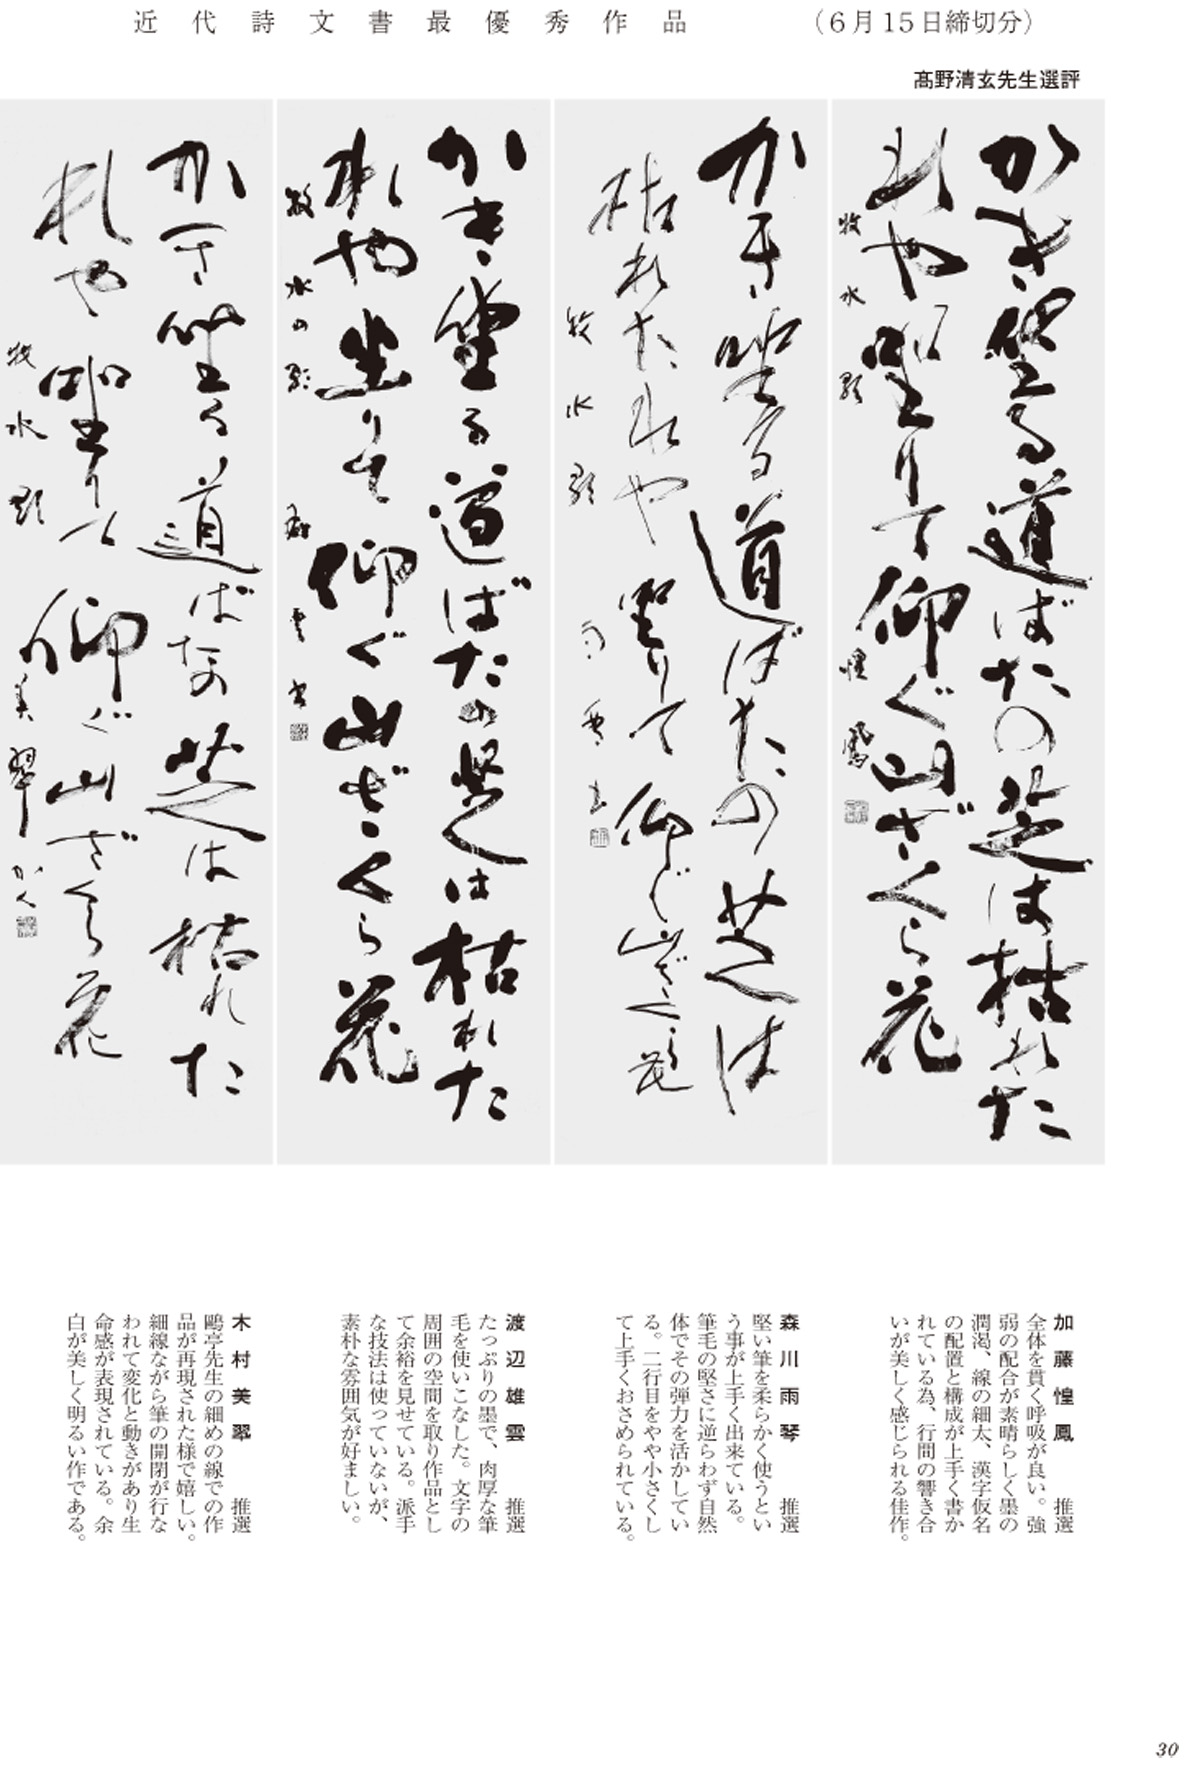 近代詩文書最優秀作品　（6月15日締切分）
髙野清玄先生選評
かき坐る道ばたの芝は枯れた
れや坐りて仰ぐ山ざくら花
牧水歌 惶鳳
かき坐る道ばたの芝は
枯れたれや坐りて仰ぐ山ざくら花
牧水歌 雨琴
かき坐る道ばたの芝は枯れた
れや坐りて仰ぐ山ざくら花
牧水の歌 雄雲書
かき坐る道ばたの芝は枯れた
れや坐りて仰ぐ山ざくら花
牧水歌 美翠かく
加藤惶鳳　推選
全体を貫く呼吸が良い。強
弱の配合が素晴らしく墨の
潤渇、線の細太、漢字仮名
の配置と構成が上手く書か
れている為、行間の響き合
いが美しく感じられる佳作。
森川雨琴　推選
堅い筆を柔らかく使うとい
う事が上手く出来ている。
筆毛の堅さに逆らわず自然
体でその弾力を活かしてい
る。二行目をやや小さくし
て上手くおさめられている。
渡辺雄雲　推選
たっぷりの墨で、肉厚な筆
毛を使いこなした。文字の
周囲の空間を取り作品とし
て余裕を見せている。派手
な技法は使っていないが、
素朴な雰囲気が好ましい。
木村美翠　推選
鷗亭先生の細めの線での作
品が再現された様で嬉しい。
細線ながら筆の開閉が行な
われて変化と動きがあり生
命感が表現されている。余
白が美しく明るい作である。
30